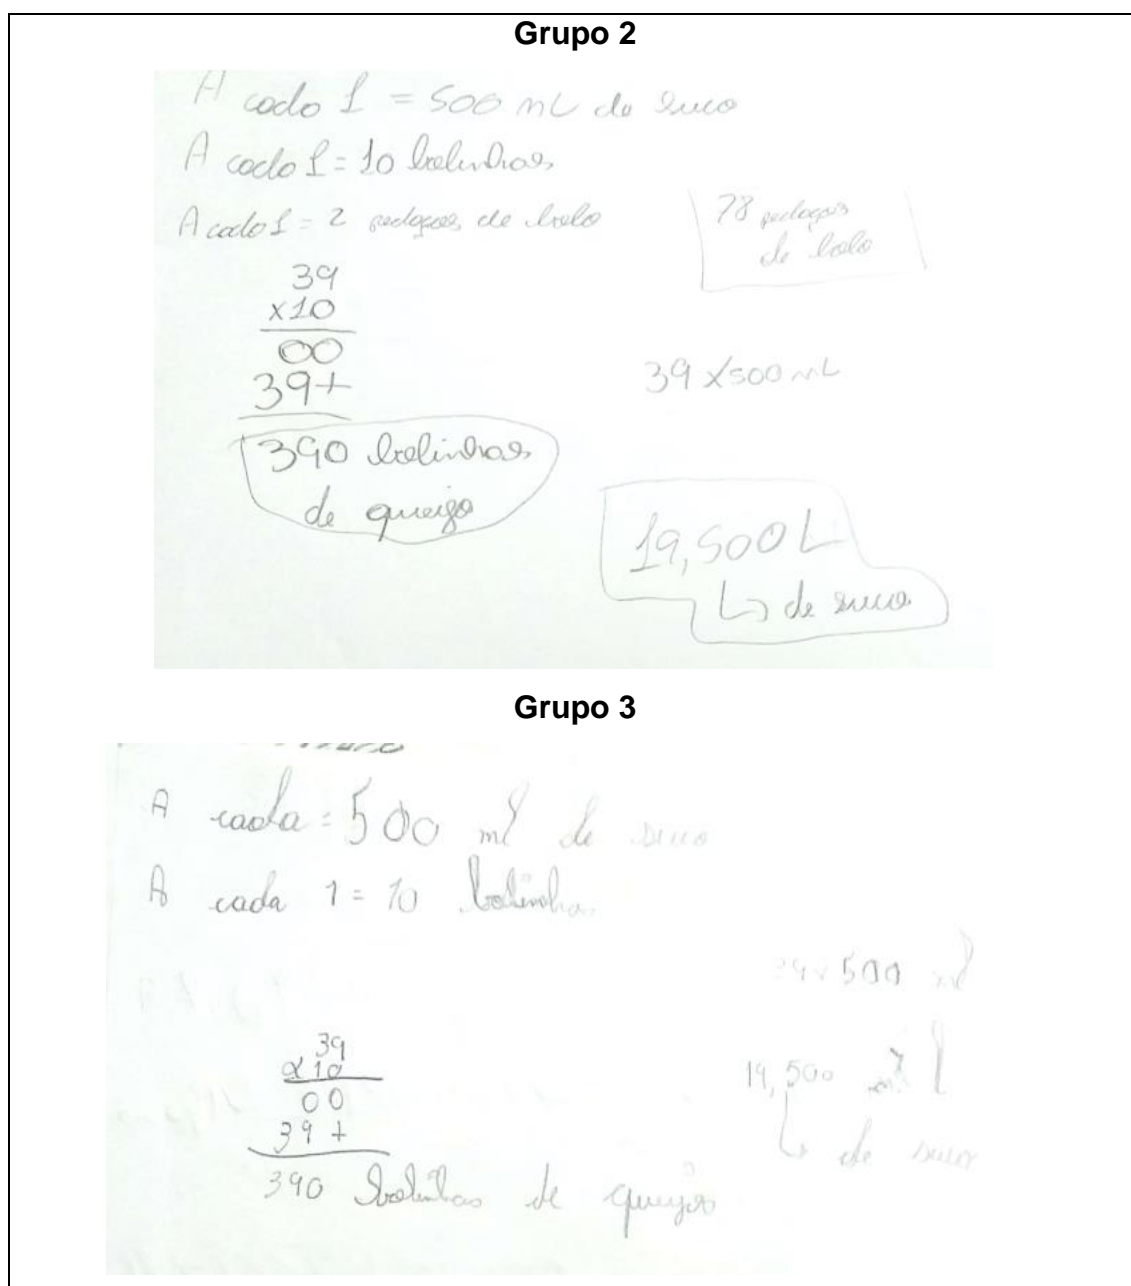 Grupo 2
A cada 1 = 500 mL de suco
A cada 1 = 10 bolinhas
A cada 1 = 2 pedaços de bolo
78 pedaços
de bolo
39
x10
00
39+
390 bolinhas
de queijo
39 x 500 mL
19,500 L
↳ de suco
Grupo 3
A cada = 500 ml de suco
A cada 1 = 10 bolinhas
39 x 500 ml
39
x 10
00
39 +
390 bolinhas de queijos
19,500 l
↳ de suco